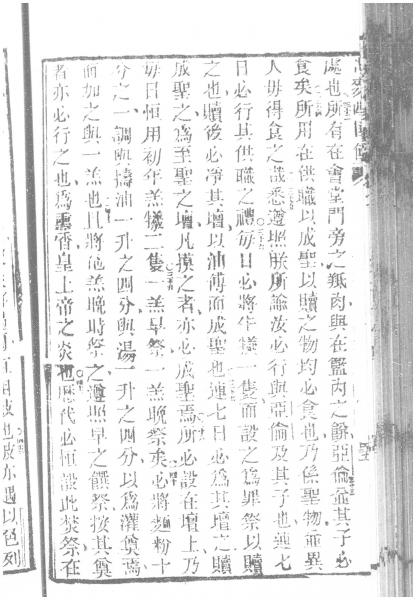 處也所有在會堂門旁之羝肉與在籃內之餅亞倫並其子必
食矣所用在供職以成聖以贖之物均必食也乃係聖物並異
人毋得食之哉悉遵照朕所諭汝必行與亞倫及其子也連七
日必行其供職之禮每日必將牛犢一隻而設之為罪祭以贖
之也贖後必淨其壇以油傅而成聖也連七日必為其壇之贖
成聖之為至聖之壇凡摸之者亦必成聖焉所必設在壇上乃
每日恒用初年羔二隻一羔早祭一羔晚祭矣必將麵粉十
分之一調與擣油一升之四分與湯一升之四分以為灌奠焉
而加之與一羔也且將他羔晚時祭之遵照早之饌祭按其奠
者亦必行之也為馨香皇上帝之炎也歷代必恒設此焚祭在